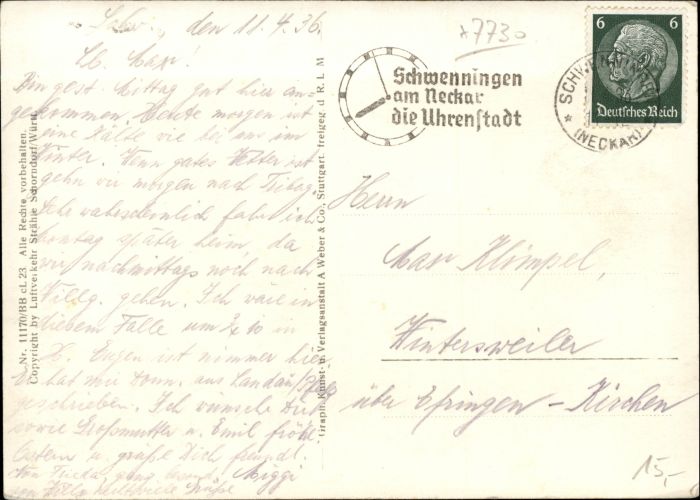 den 11.4.36.
x7730
Lb. Max!
Bin gest. Mittag gut hier an-
gekommen. Heute morgen ist
eine Kälte wie bei uns im
Winter. Wenn gutes Wetter ist
gehn wir morgen nach Triberg.
Sehr wahrscheinlich fahr ich
Montag später heim, da
wir nachmittags noch nach
Villg. gehen. Ich wäre in
diesem Falle um ¾ 10 in
Eugen ist nimmer hier
Er hat mir Donn. aus Landau/Pfalz
geschrieben. Ich wünsche Dir
sowie Großmutter u. Emil fröhl.
Ostern u. grüße Dich freundl.
Miggi
Nr. 11170/BB cL 23 Alle Rechte vorbehalten.
Copyright by Luftverkehr Strähle Schorndorf/Württ.
Graph. Kunst- u. Verlagsanstalt A Weber & Co., Stuttgart. freigeg d R. L M
Schwenningen
am Neckar
die Uhrenstadt
SCHWENNINGEN
(NECKAR)
6 6
Deutsches Reich
Herrn
Max Klimpel,
Wintersweiler
über Efringen-Kirchen
15,-